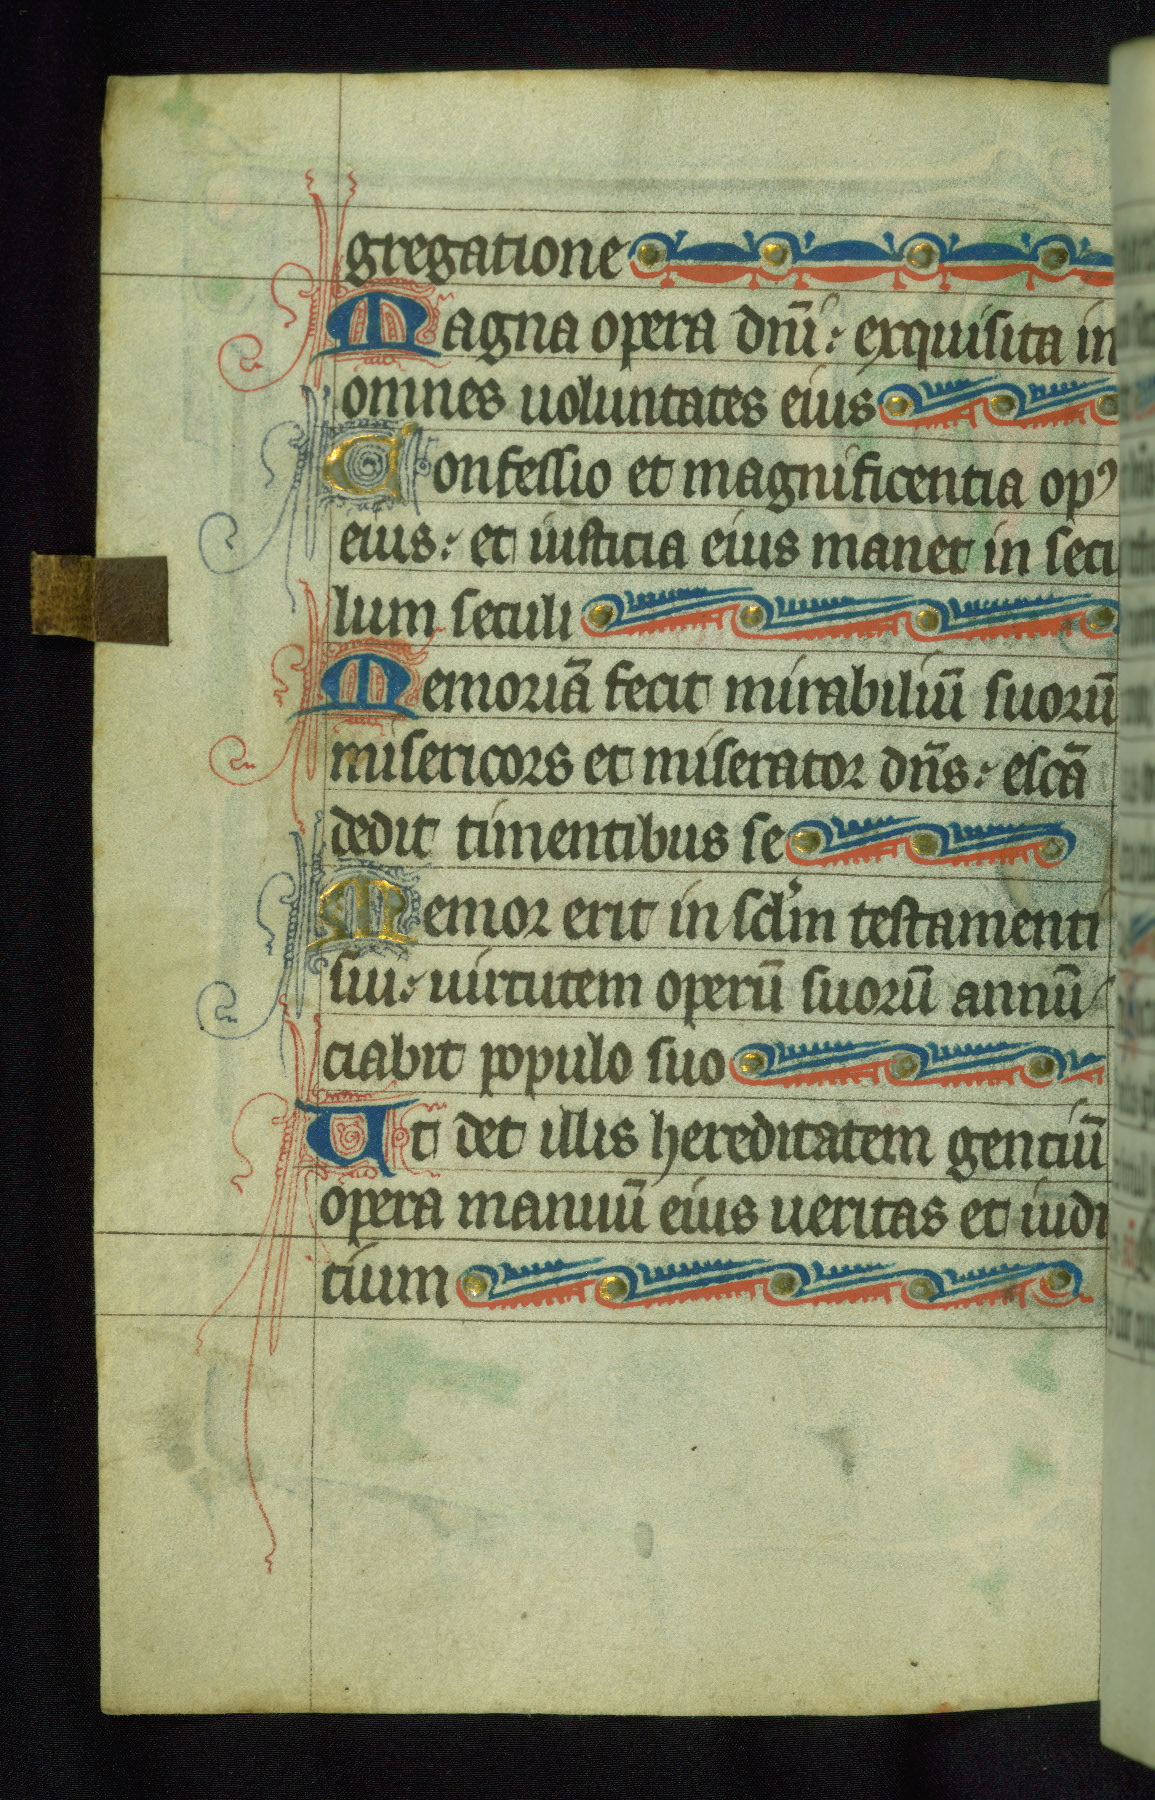 gregatione
Magna opera dnī: exquisita in
omnes uoluntates eius
Confessio et magnificentia opꝰ
eius: et iusticia eius manet in secu
lum seculi
Memoriā fecit mirabiliū suorū
misericors et miserator dn̄s: escā
dedit timentibus se
Memor erit in sclm̄ testamenti
sui: uirtutem operū suorū annū
ciabit populo suo
Ut det illis hereditatem gentiū
opera manuū eius ueritas et iudi
cium